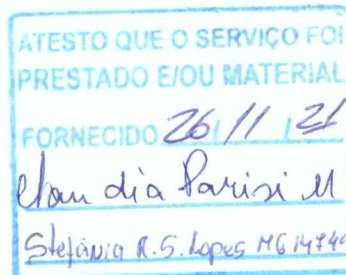 ATESTO QUE O SERVIÇO FOI
PRESTADO E/OU MATERIAL
FORNECIDO 26/11/21
Claudia Parisi M
Stefânia R.S. Lopes MG 14744